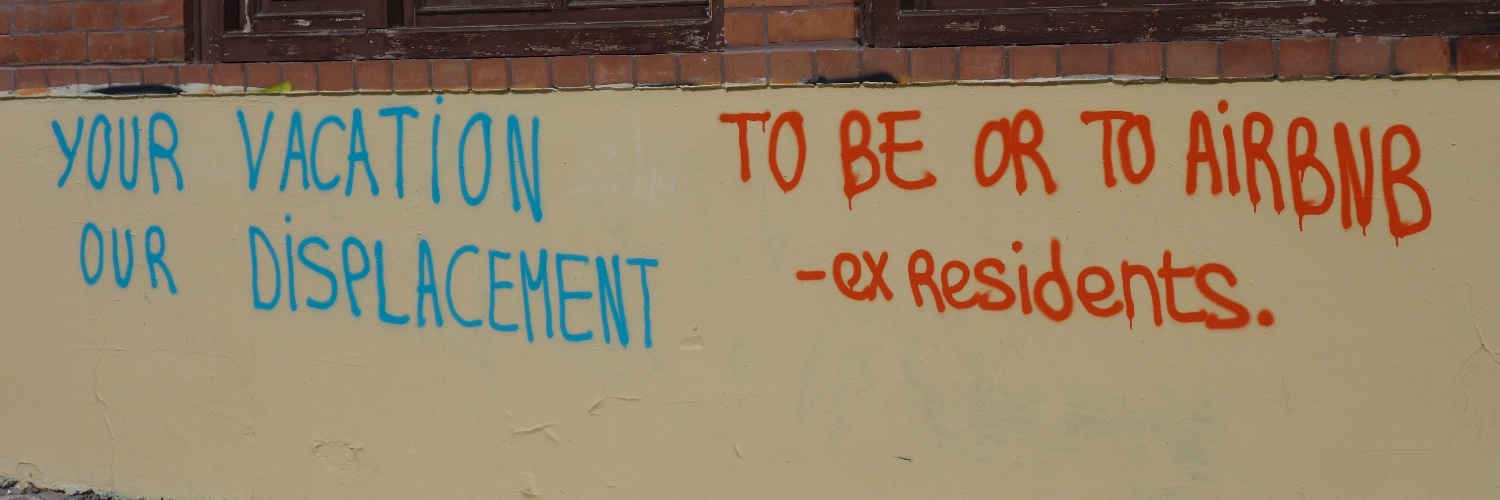 YOUR VACATiON
OUR DiSPLACEMENT
TO BE OR TO AiRBNB
-ex Residents.